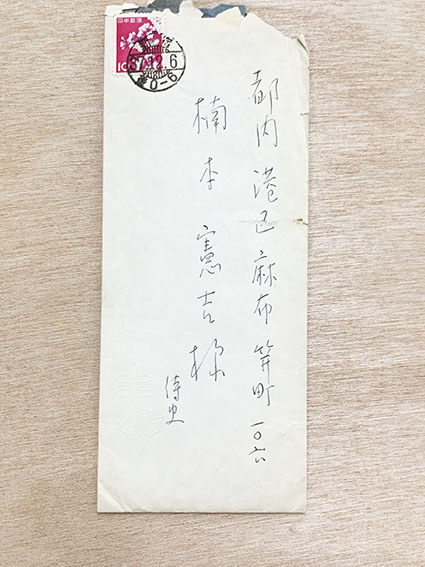 都内港区麻布笄町一〇六
楠本憲吉様
侍史
日本郵便
10
37.12.6
0-6